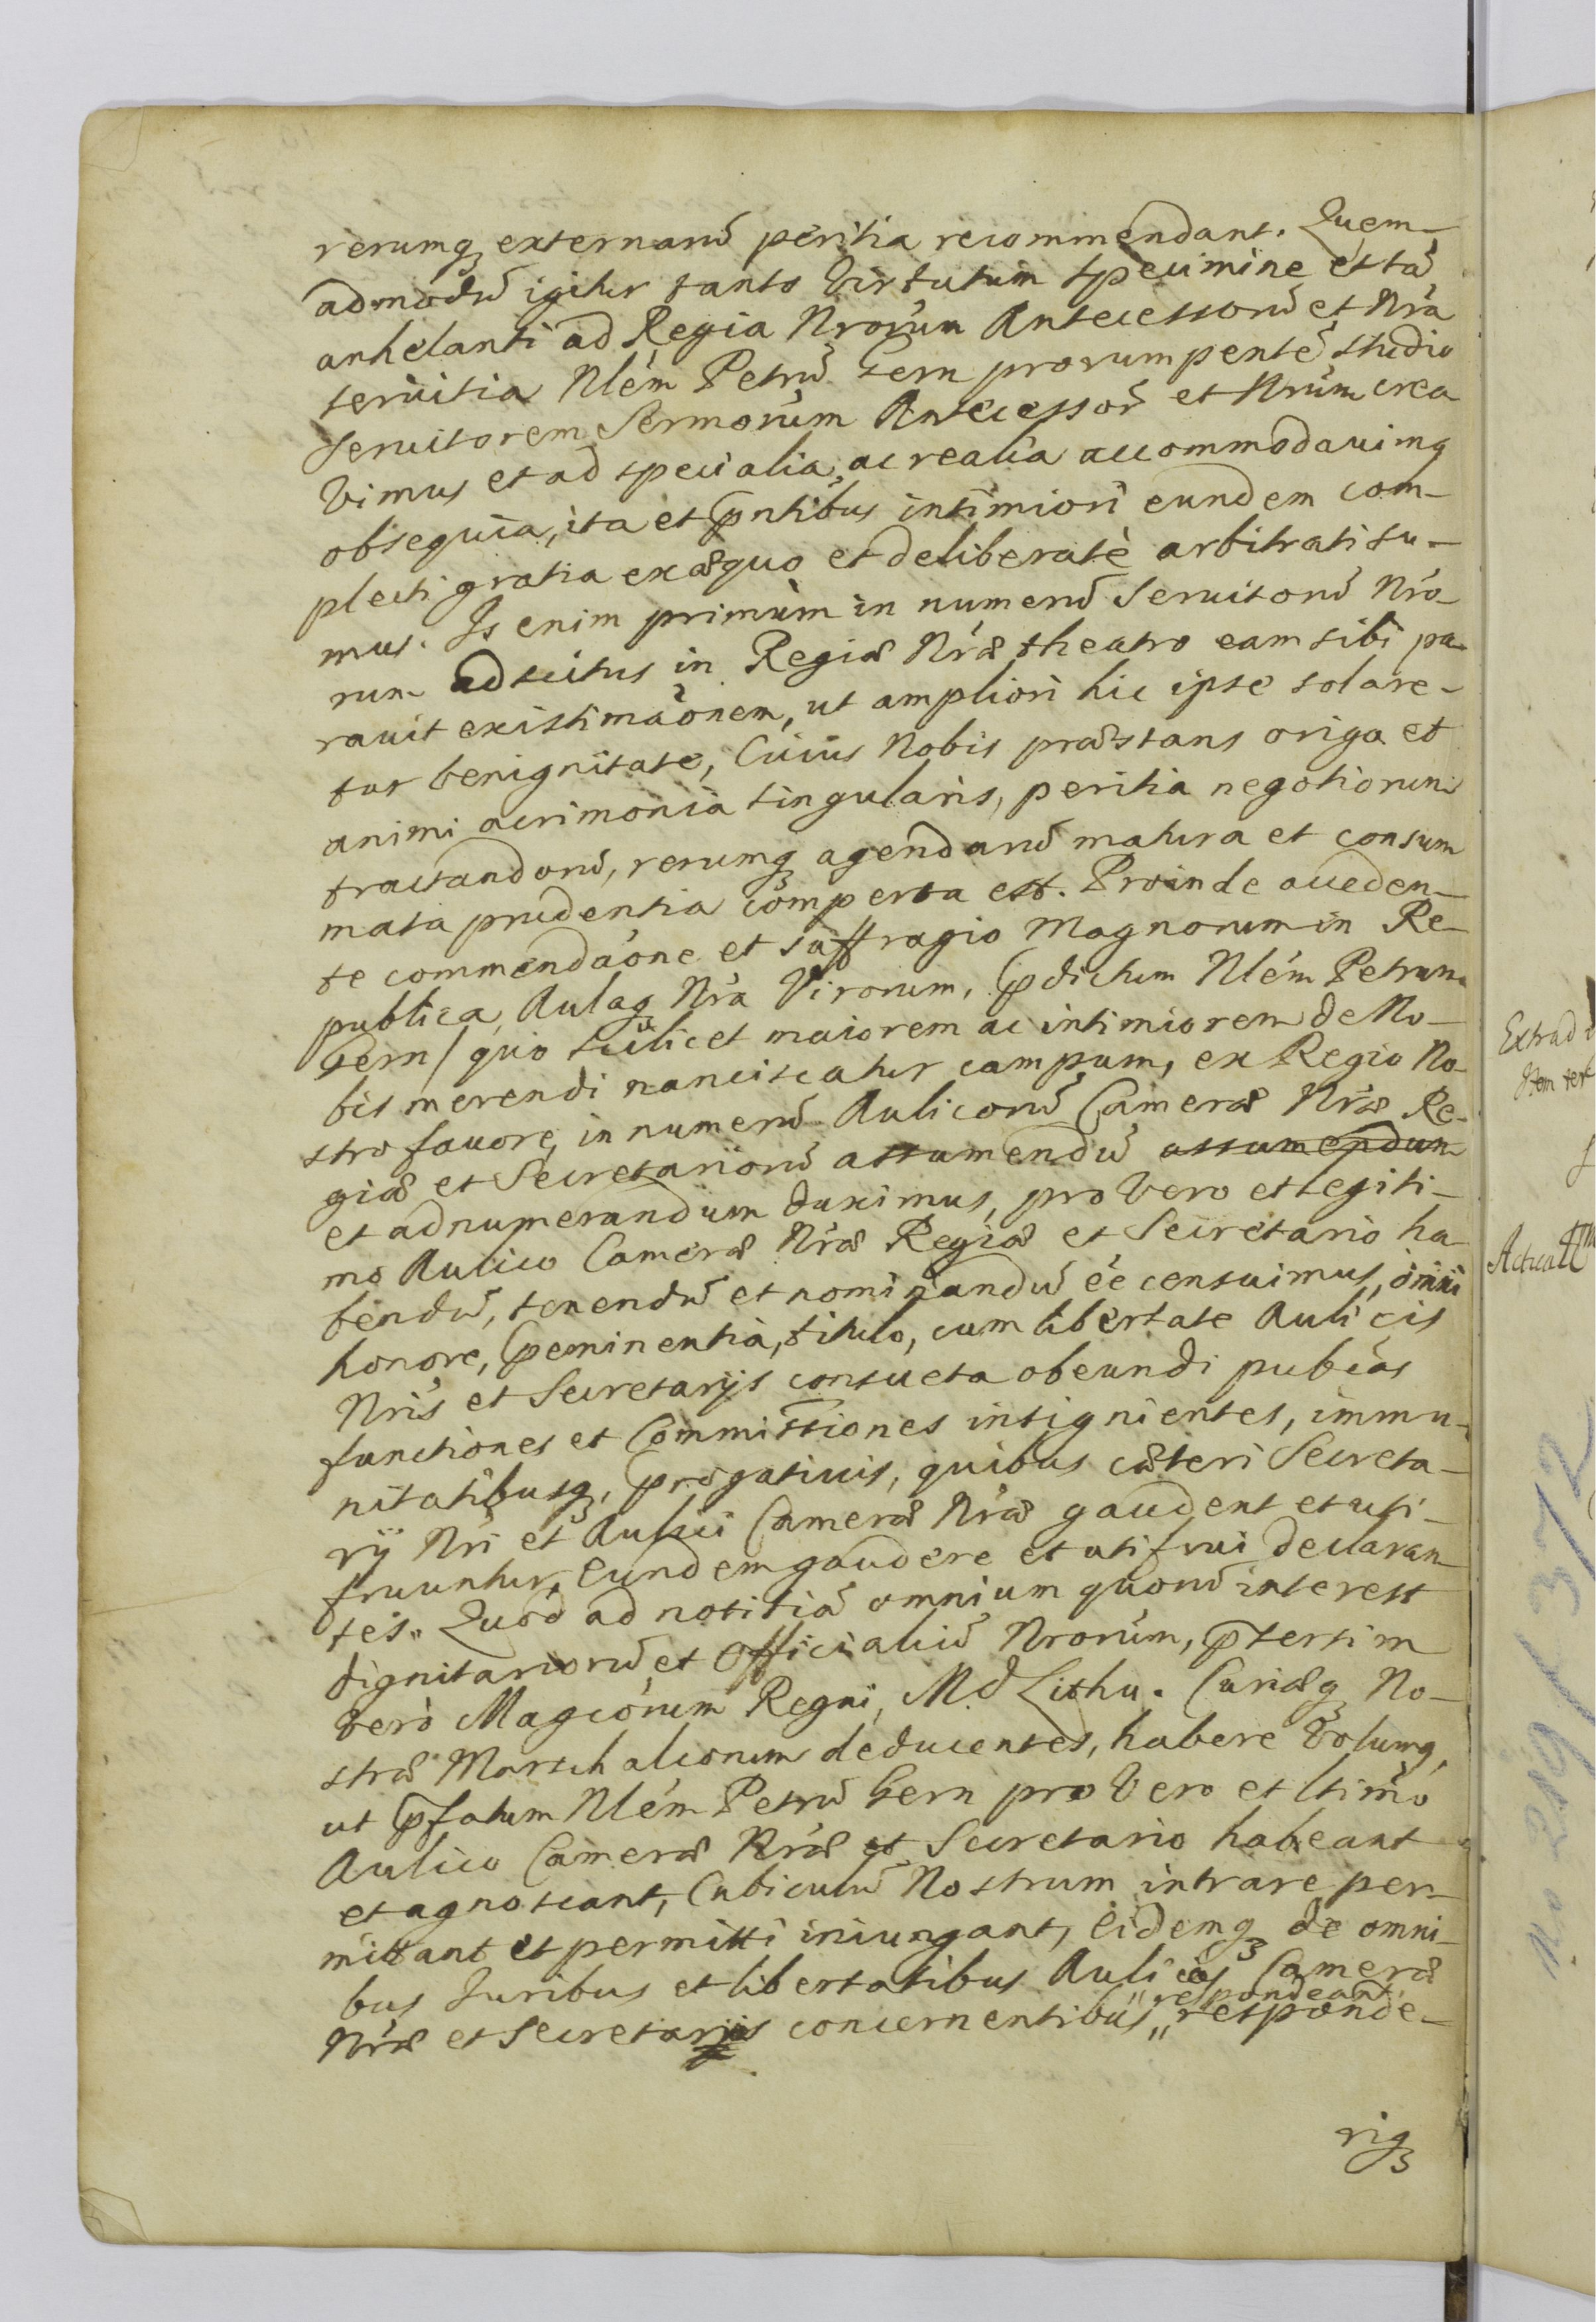 rerumq₃ externarū peritia recommendant. Quem-
admodū igitur tanto Virtutum specimine et tā
anhelanti ad Regia Nrorum Antecessorū et Nra
seruitia Nlem Petrū Gern prorumpentē studio
Seruitorem Sermorum Antecessorū et Nrum crea
Vimus et ad specialia, ac realia accommodauimq
obsequia, ita et pntibus intimiori eundem com-
plecti gratia ex æquo et deliberatè arbitrati su-
mus. Is enim primùm in numerū Seruitorū Nro-
rum adscitus in Regiæ Nræ theatro eam sibi pa-
rauit existimaonem, ut ampliori hic ipse solare-
tur benignitate, Cuius Nobis præstans origa et
animi acrimonia singularis, peritia negotiorum
tractandorū, rerumq₃ agendarū matura et consum
mata prudentia comperta est. Proinde acceden-
te commendaone et suffragio Magnorum in Re-
publica, Aulaq₃ Nra Virorum, pdictum Nlem Petrum
Gern / quo scilicet maiorem ac intimiorem de No-
bis merendi nanciscatur campum, ex Regio No-
stro fauore, in numerū Aulicorū Cameræ Nræ Re-
giæ et Secretariorū assumendū assumendum
et adnumerandum duximus, pro Vero et legiti-
mo Aulico Cameræ Nræ Regiæ et Secretario ha-
bendū, tenendū et nominandū ee censuimus, omni
honore, peminentia, titulo, cum libertate Aulicis
Nris et Secretarijs consueta obeundi pubcas
functiones et Commissiones insignientes, immu-
nitatibusq₃, progatiuis, quibus cæteri Secreta-
rij Nri et Aulici Cameræ Nræ gaudent et uti-
fruuntur, Eundem gaudere et uti frui declaran-
tes. Quod ad notitiā omnium quorū interest
dignitariorū et Officialiū Nrorum, psertim
verò Magcorum Regni, M. D. Lithu. Curiæq₃ No-
stræ Marschalcorum deducentes, habere Volumq,
ut pfatum Nlem Petrū Gern pro Vero et ltimo
Aulico Cameræ Nræ et Secretario habeant
et agnoscant, Cubiculū Nostrum intrare per-
mittant et permitti iniungant, Eidemq₃ de omni-
bus Iuribus et libertatibus Aulicos Cameræ
respondeant
Nræ et Secretarijs concernentibus responde-
riq₃
Extrad
Actuall
No 219 372